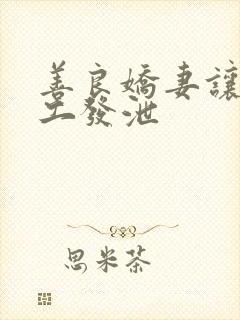 善良嬌妻讓
工發泄
思米茶